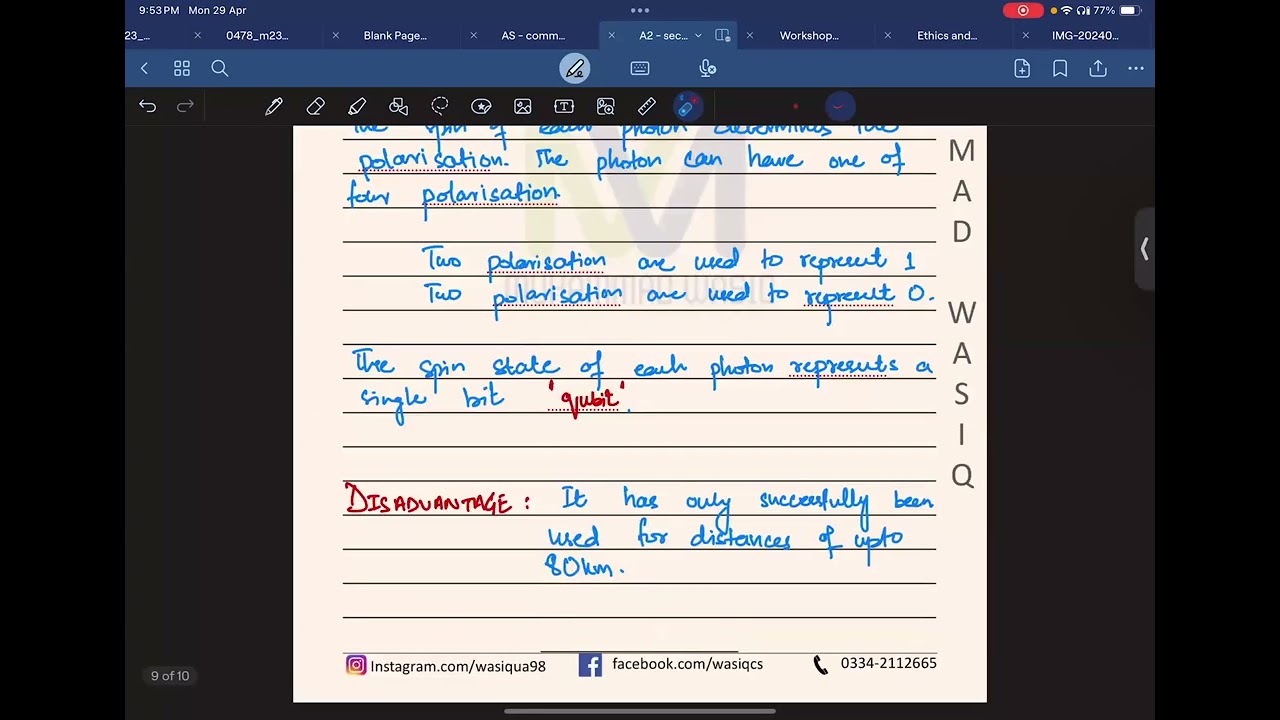 9:53 PM Mon 29 Apr
77%
23_...
0478_m23...
Blank Page...
AS - comm...
A2 - sec...
Workshop...
Ethics and...
IMG-20240...
The spin of each photon determines the
polarisation. The photon can have one of
four polarisation.
Two polarisation are used to represent 1
Two polarisation are used to represent 0.
The spin state of each photon represents a
single bit 'qubit'.
DISADVANTAGE: It has only successfully been
used for distances of upto
80km.
MUHAMMAD WASIQ
Instagram.com/wasiqua98
facebook.com/wasiqcs
0334-2112665
9 of 10
M
A
D
W
A
S
I
Q